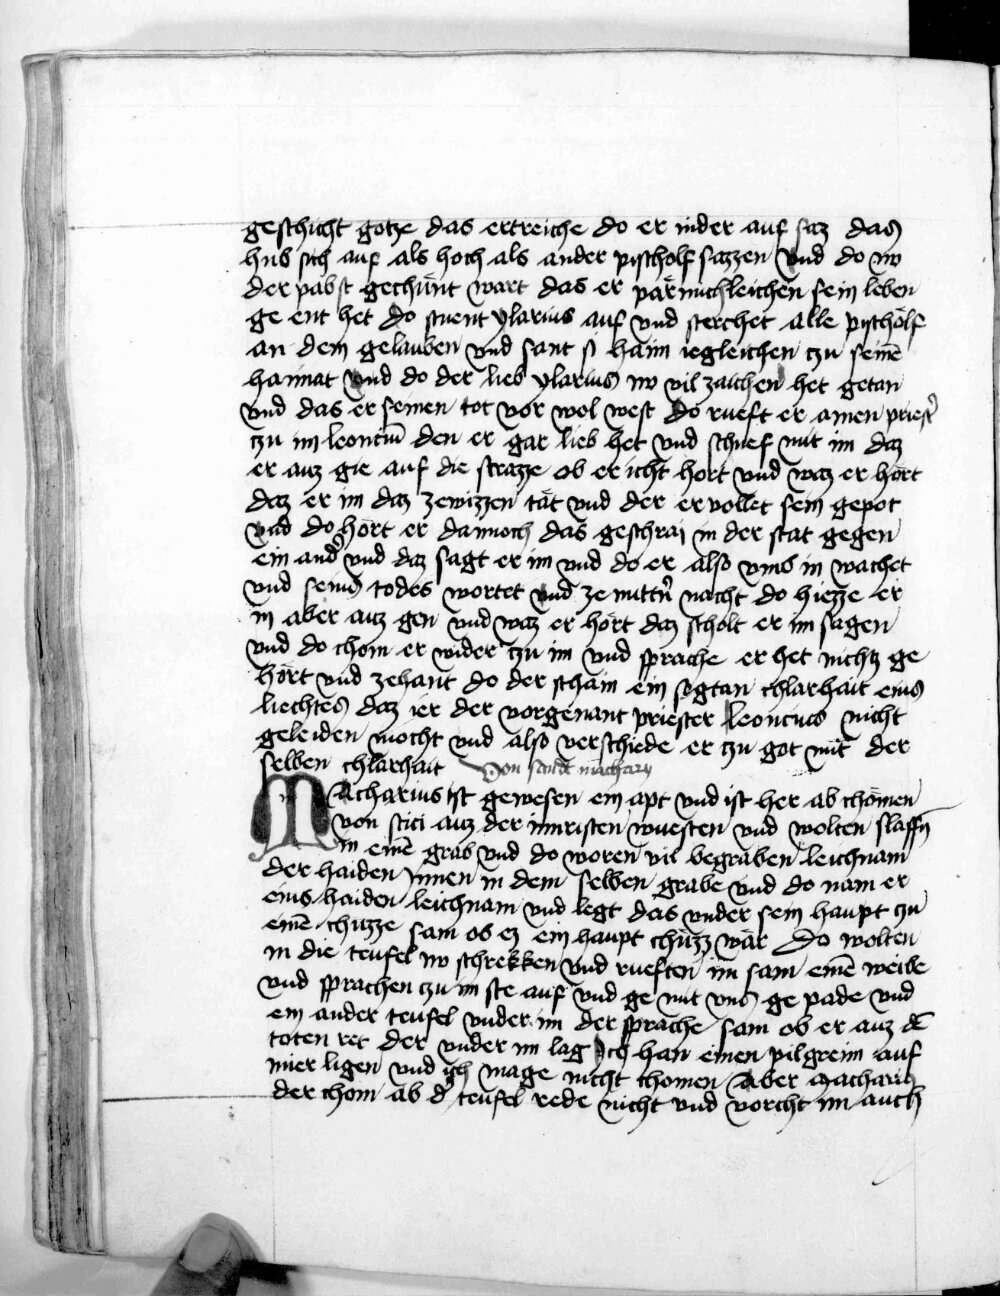 geschicht gotze das ertreiche do er nider auf saz das
hub sich auf als hoch als ander pischolf sazzen Vnd do nv
der pabst gechünt wart das er pärmichleichen sein leben
ge ent het do stuent ylarius auf vnd sterchet alle pischölf
an dem gelauben vnd sant si haim iegleichen tzu seinē
haimat Vnd do der lieb ylarius nv vil zaichen het getan
vnd das er seinen tot vor wol west do rueft er ainen priest̾
tzu im leonciū den er gar lieb het vnd schuef mit im daz
er auz gie auf die strazze ob er icht hort vnd waz er hört
daz er im daz zewizzen tät vnd der ervollet sein gepot
vnd do hört er dannoch das geschrai in der stat gegen
ein and̾ vnd daz sagt er im vnd do er also vmb in wachet
vnd seins todes wortet vnd ze mittn̾ nacht do hiezze er
in aber auz gen vnd waz er hört daz scholt er im sagen
vnd do chom er wider tzu im vnd sprache er het nichtz ge
hört vnd zehant do der schain ein sogtan chlarhait eins
liechtes daz ier der vorgenant priester leoncius nicht
geleiden mocht vnd also verschiede er tzu got mit der
selben chlarhait Von sandt machary
Macharius ist gewesen ein apt vnd ist her ab chömen
von sciti auz der inristen wuesten vnd wolten slaffn̄
in einē grab vnd do woren vil begraben leichnam
der haiden innen in dem selben grabe vnd do nam er
eins haiden leichnam vnd legt das vnder sein haupt tzu
einē chuzze sam ob ez ein haupt chüzz wär Do wolten
in die teufel nv schrekken vnd rueften im sam einē weibe
vnd sprachen tzu im ste auf vnd ge mit vns ge pade vnd
ein ander teufel vnder im der sprache sam ob er auz dē
toten ret der vnder im lag Ich han einen pilgreim auf
mier ligen vnd ich mage nicht chomen Aber Macharius
der chom ab d̾ teufel rede nicht vnd vorcht im auch